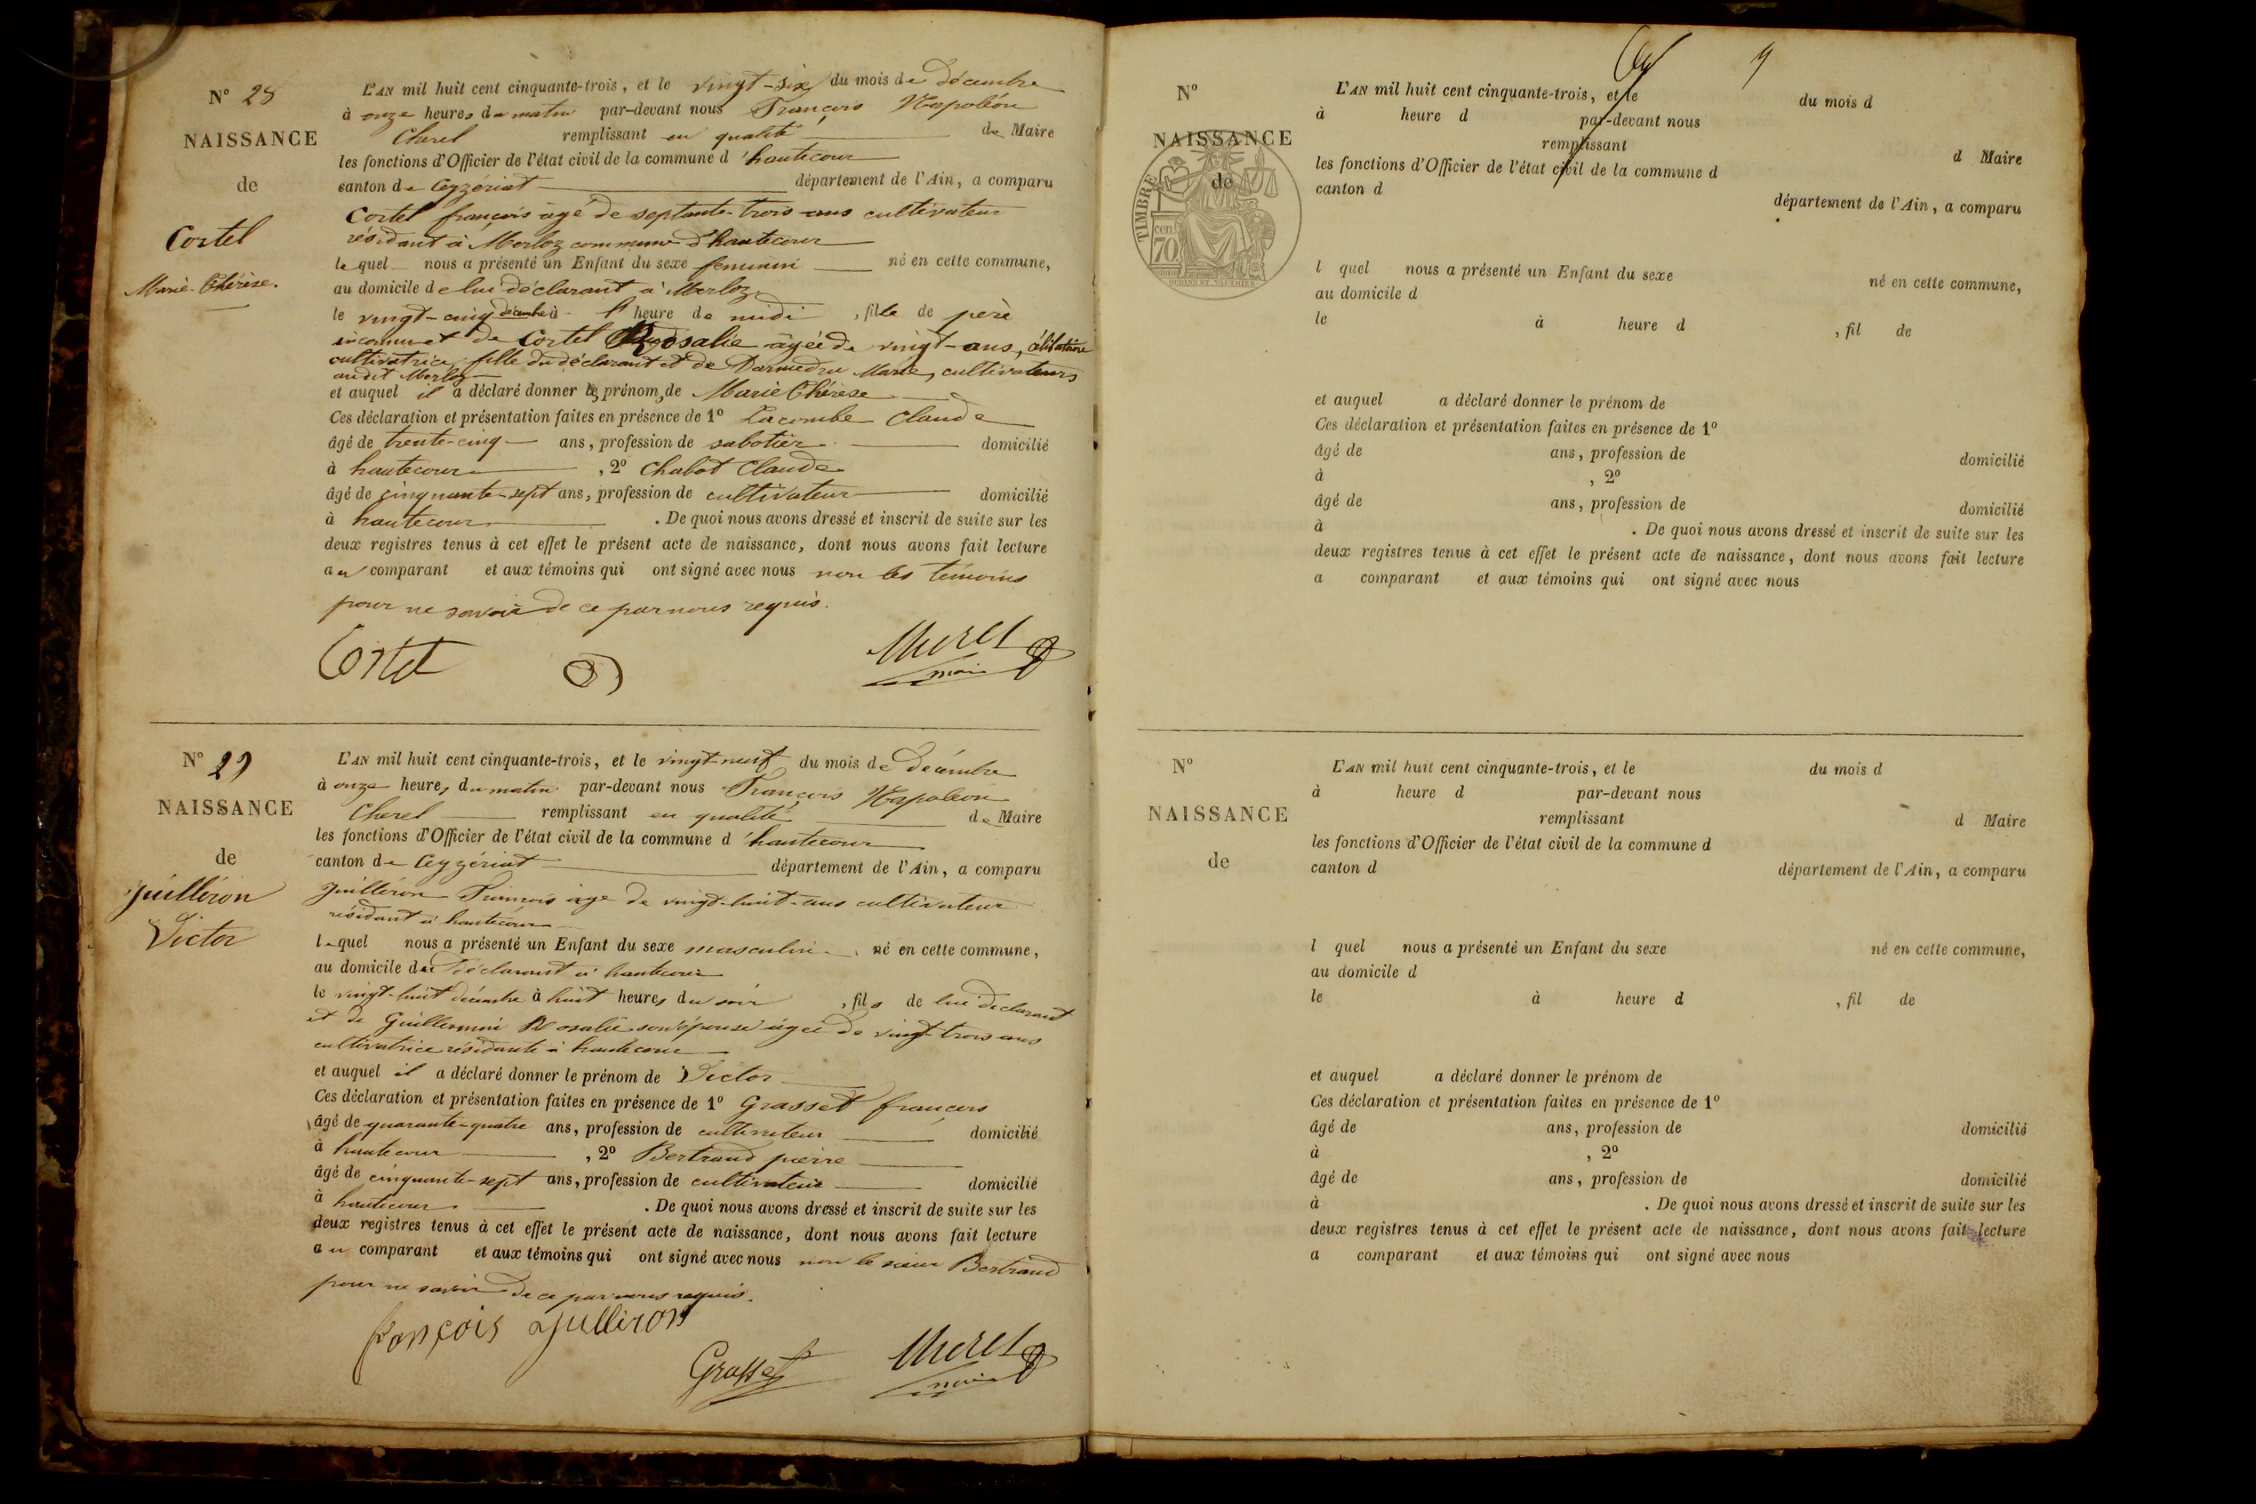 N° 28
NAISSANCE
de
Cortel
Marie-Thérèse.
L'AN mil huit cent cinquante-trois, et le vingt-six du mois de décembre
à onze heures du matin par-devant nous François Napoléon
Cherel remplissant en qualité de Maire
les fonctions d'Officier de l'état civil de la commune d'hautecour
canton de Ceyzériat département de l'Ain, a comparu
Cortel françois âgé de septante-trois ans cultivateur
résidant à Merloz commune d'hautecour
lequel nous a présenté un Enfant du sexe feminin né en cette commune,
au domicile de lui déclarant à Merloz
le vingt-cinq décembre à l'heure de midi, fille de père
inconnu et de Cortel Rosalie âgée de vingt-ans, célibataire
cultivatrice, fille du déclarant et de Marie, cultivateurs
audit Merloz
et auquel il a déclaré donner les prénoms de Marie Thérèse
Ces déclaration et présentation faites en présence de 1° Lacombe Claude
âgé de trente-cinq ans, profession de sabotier domicilié
à hautecour, 2° Chabot Claude
âgé de cinquante-sept ans, profession de cultivateur domicilié
à hautecour. De quoi nous avons dressé et inscrit de suite sur les
deux registres tenus à cet effet le présent acte de naissance, dont nous avons fait lecture
au comparant et aux témoins qui ont signé avec nous non les témoins
pour ne savoir de ce par nous requis.
Cortel
maire
N° 29
NAISSANCE
de
Juilleron
Victor
L'AN mil huit cent cinquante-trois, et le vingt-neuf du mois de décembre
à onze heures du matin par-devant nous François Napoléon
Cherel remplissant en qualité de Maire
les fonctions d'Officier de l'état civil de la commune d'hautecour
canton de Ceyzériat département de l'Ain, a comparu
Juilleron François âgé de vingt-huit-ans cultivateur
résidant à hautecour
lequel nous a présenté un Enfant du sexe masculin né en cette commune,
au domicile du déclarant à hautecour
le vingt-huit décembre à huit heures du soir, fils de lui déclarant
et de Guillermin Rosalie son épouse âgée de vingt-trois ans
cultivatrice résidante à hautecour
et auquel il a déclaré donner le prénom de Victor
Ces déclaration et présentation faites en présence de 1° Grasset françois
âgé de quarante-quatre ans, profession de cultivateur domicilié
à hautecour, 2° Bertrand pierre
âgé de cinquante-sept ans, profession de cultivateur domicilié
à hautecour. De quoi nous avons dressé et inscrit de suite sur les
deux registres tenus à cet effet le présent acte de naissance, dont nous avons fait lecture
au comparant et aux témoins qui ont signé avec nous non le sieur Bertrand
pour ne savoir de ce par nous requis.
françois Julliron
Grasset
maire
N°
NAISSANCE
de
TIMBRE
cent
70
L'AN mil huit cent cinquante-trois, et le du mois d
à heure d par-devant nous
remplissant d Maire
les fonctions d'Officier de l'état civil de la commune d
canton d département de l'Ain, a comparu
l quel nous a présenté un Enfant du sexe né en cette commune,
au domicile d
le à heure d , fil de
et auquel a déclaré donner le prénom de
Ces déclaration et présentation faites en présence de 1°
âgé de ans, profession de domicilié
à , 2°
âgé de ans, profession de domicilié
à . De quoi nous avons dressé et inscrit de suite sur les
deux registres tenus à cet effet le présent acte de naissance, dont nous avons fait lecture
a comparant et aux témoins qui ont signé avec nous
N°
NAISSANCE
de
L'AN mil huit cent cinquante-trois, et le du mois d
à heure d par-devant nous
remplissant d Maire
les fonctions d'Officier de l'état civil de la commune d
canton d département de l'Ain, a comparu
l quel nous a présenté un Enfant du sexe né en cette commune,
au domicile d
le à heure d , fil de
et auquel a déclaré donner le prénom de
Ces déclaration et présentation faites en présence de 1°
âgé de ans, profession de domicilié
à , 2°
âgé de ans, profession de domicilié
à . De quoi nous avons dressé et inscrit de suite sur les
deux registres tenus à cet effet le présent acte de naissance, dont nous avons fait lecture
a comparant et aux témoins qui ont signé avec nous